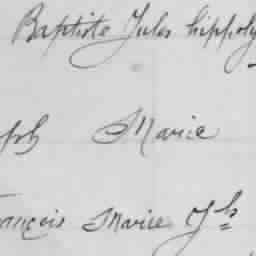 Baptiste Jules hippoly
sph Marie
rançois Marie Jh